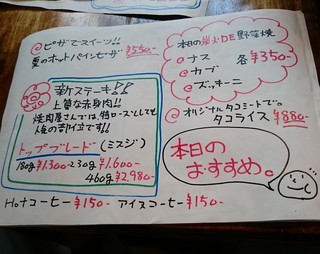 ピザでスイーツ!!
夏のホットパインピザ ¥550-
厚ケステーキ!!
上質な赤身肉!!
焼肉屋さんでは、特ロースとしても
人気の部位です!!
トップブレード(ミスジ)
180g ¥1.300- 230g ¥1.600-
460g ¥2.980-
Hotコーヒー ¥150- アイスコーヒー ¥150-
本日の炭火DE野菜焼
ナス 各¥350-
カブ
ズッキーニ
オリジナルタコミートで。
タコライス ¥880-
本日の
おすすめ。